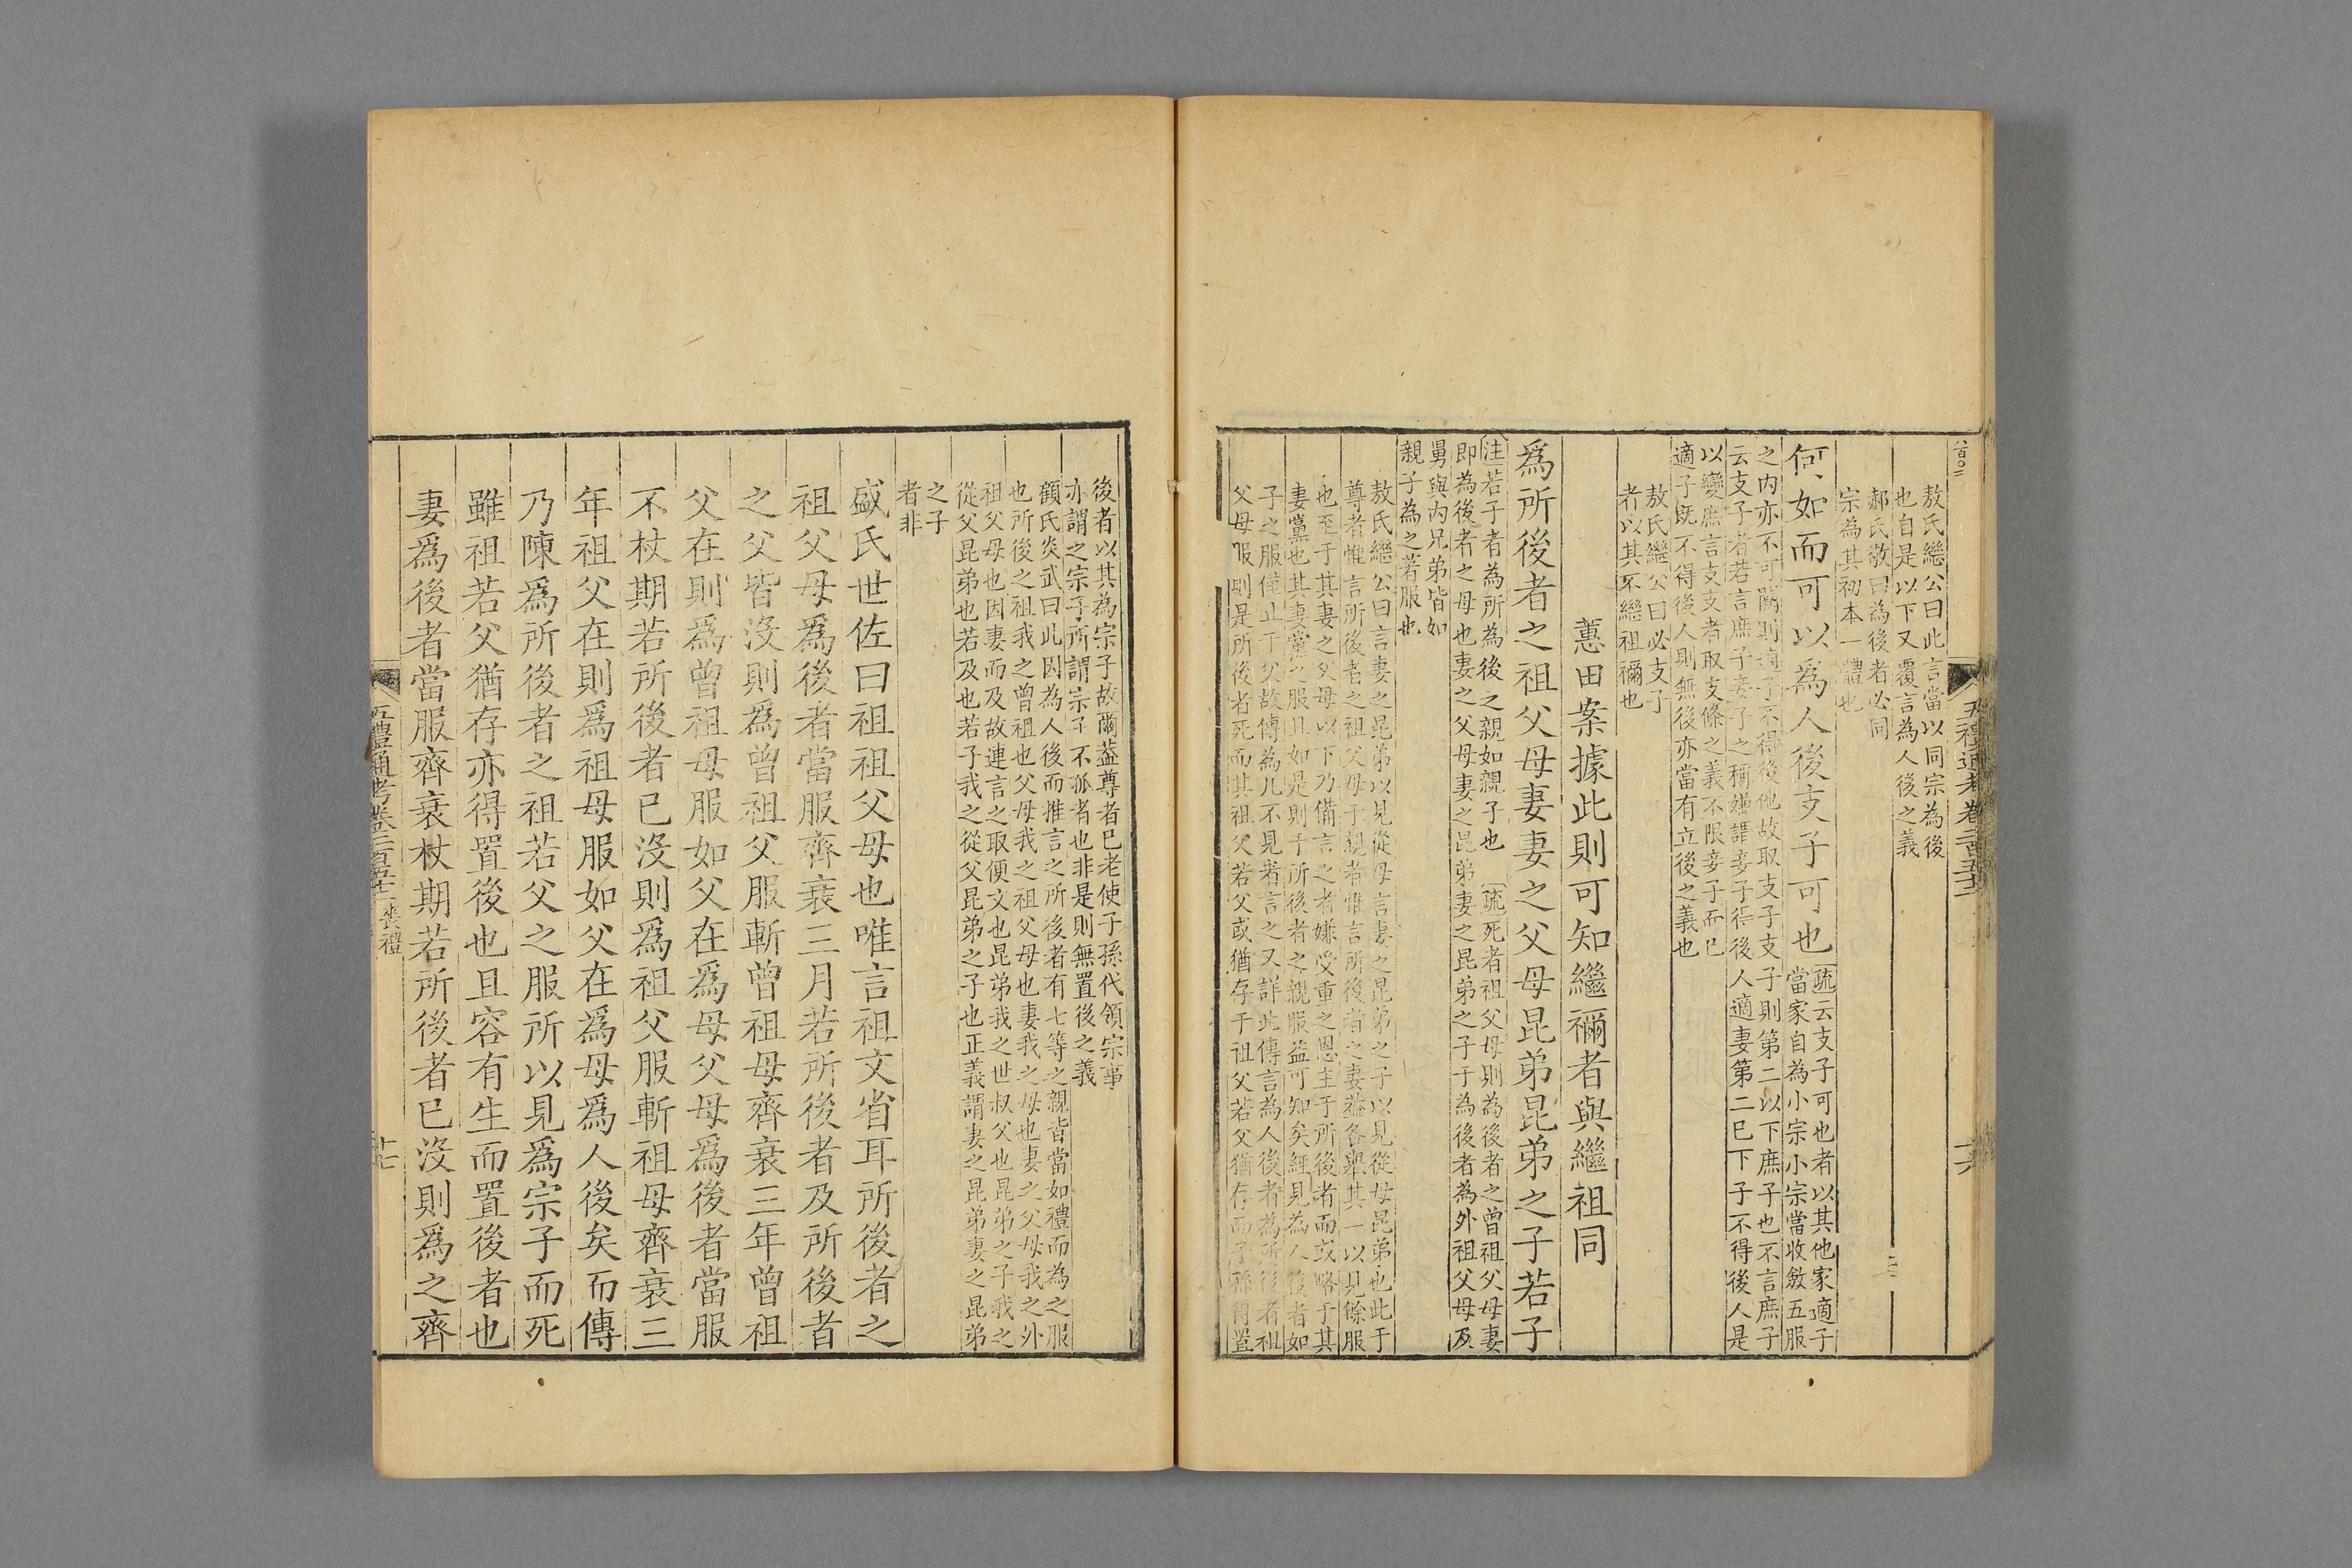 敖氏繼公曰此言當以同宗為後
也自是以下又覆言為人後之義
郝氏敬曰為後者必同
宗為其初本一體也
何如而可以爲人後支子可也
疏云支子可也者以其他家適子
當家自為小宗小宗當收斂五服
之内亦不可闕則適子不得後他故取支子支子則第二以下庶子也不言庶子
云支子者若言庶子妾子之稱嫌謂妾子得後人適妻第二已下子不得後人是
以變庶言支支者取支條之義不限妾子而已
適子既不得後人則無後亦當有立後之義也
敖氏繼公曰必支子
者以其不繼祖禰也
蕙田案據此則可知繼禰者與繼祖同
爲所後者之祖父母妻妻之父母昆弟昆弟之子若子
注若子者為所為後之親如親子也 疏死者祖父母則為後者之曾祖父母妻
即為後者之母也妻之父母妻之昆弟妻之昆弟之子于為後者為外祖父母及
舅與內兄弟皆如
親子為之著服也
敖氏繼公曰言妻之昆弟以見從母言妻之昆弟之子以見從母昆弟也此于
尊者惟言所後者之祖父母于親者惟言所後者之妻蓋各舉其一以見餘服
也至于其妻之父母以下乃備言之者嫌受重之恩主于所後者而或略于其
妻黨也其妻黨之服且如是則于所後者之親服益可知矣經見為人後者如
子之服僅止于父故傳為凡不見者言之又詳此傳言為人後者為所後者祖
父母服則是所後者死而其祖父若父或猶存于祖父若父猶存而子孫得置
後者以其為宗子故爾蓋尊者已老使子孫代領宗事
亦謂之宗子所謂宗子不孤者也非是則無置後之義
顧氏炎武曰此因為人後而推言之所後者有七等之親皆當如禮而為之服
也所後之祖我之曾祖也父母我之祖父母也妻我之母也妻之父母我之外
祖父母也因妻而及故連言之取便文也昆弟我之世叔父也昆弟之子我之
從父昆弟也若及也若子我之從父昆弟之子也正義謂妻之昆弟妻之昆弟
之子
者非
盛氏世佐曰祖祖父母也唯言祖文省耳所後者之
祖父母爲後者當服齊衰三月若所後者及所後者
之父皆沒則爲曾祖父服斬曾祖母齊衰三年曾祖
父在則爲曾祖母服如父在爲母父母爲後者當服
不杖期若所後者已沒則爲祖父服斬祖母齊衰三
年祖父在則爲祖母服如父在爲母爲人後矣而傳
乃陳爲所後者之祖若父之服所以見爲宗子而死
雖祖若父猶存亦得置後也且容有生而置後者也
妻爲後者當服齊衰杖期若所後者已沒則爲之齊
五禮通考卷二百五十二 喪禮
十七